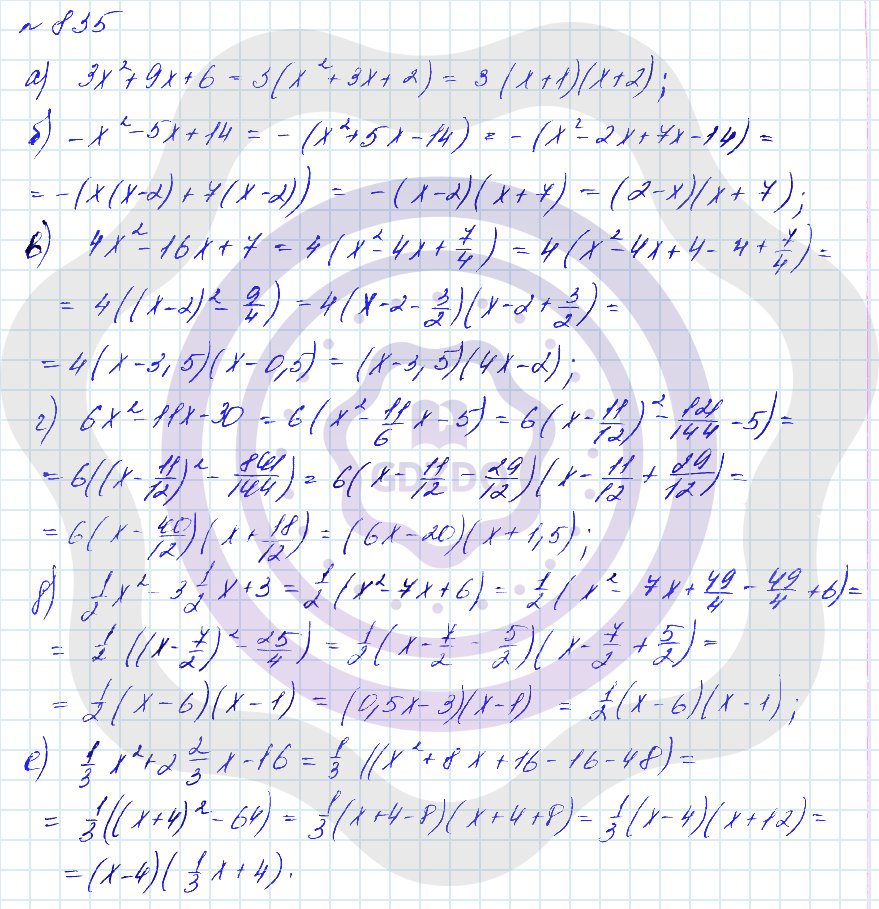 № 835
а) 3x²+9x+6 = 3(x²+3x+2) = 3(x+1)(x+2);
б) -x²-5x+14 = -(x²+5x-14) = -(x²-2x+7x-14) =
= -(x(x-2)+7(x-2)) = -(x-2)(x+7) = (2-x)(x+7);
в) 4x²-16x+7 = 4(x²-4x+7/4) = 4(x²-4x+4-4+7/4) =
= 4((x-2)²-9/4) = 4(x-2-3/2)(x-2+3/2) =
= 4(x-3,5)(x-0,5) = (x-3,5)(4x-2);
г) 6x²-11x-30 = 6(x²-11/6x-5) = 6(x-11/12)²-121/144-5) =
= 6((x-11/12)²-841/144) = 6(x-11/12-29/12)(x-11/12+29/12) =
= 6(x-40/12)(x+18/12) = (6x-20)(x+1,5);
д) 1/2x²-3 1/2x+3 = 1/2(x²-7x+6) = 1/2(x²-7x+49/4-49/4+6) =
= 1/2((x-7/2)²-25/4) = 1/2(x-7/2-5/2)(x-7/2+5/2) =
= 1/2(x-6)(x-1) = (0,5x-3)(x-1) = 1/2(x-6)(x-1);
е) 1/3x²+2 2/3x-16 = 1/3((x²+8x+16-16-48) =
= 1/3((x+4)²-64) = 1/3(x+4-8)(x+4+8) = 1/3(x-4)(x+12) =
= (x-4)(1/3x+4).